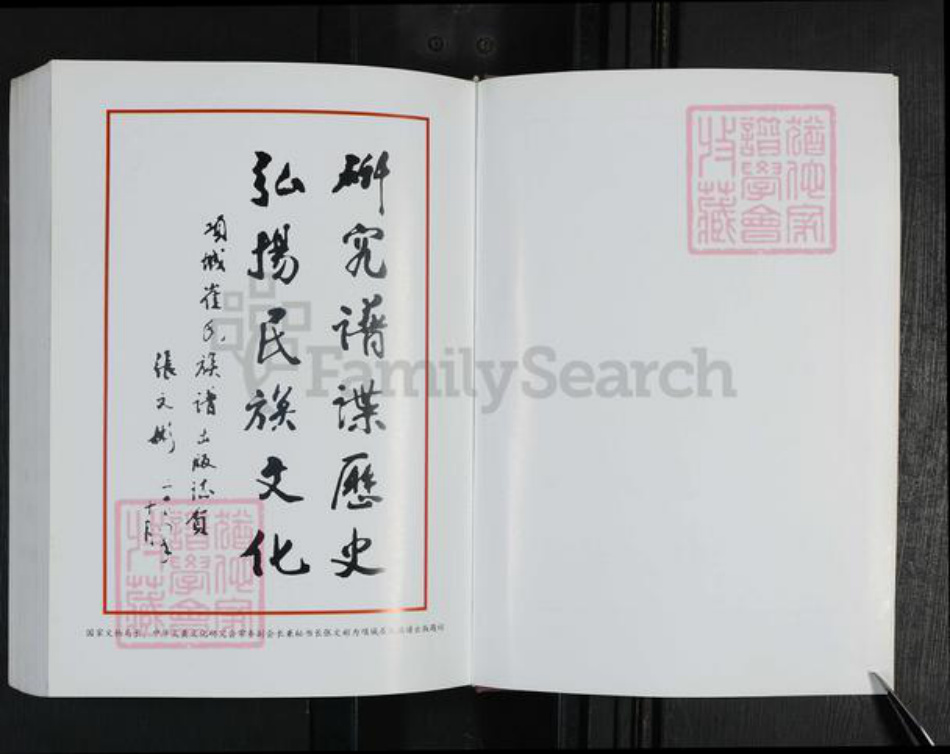 研究譜諜歷史
弘揚民族文化
項城崔氏族譜出版誌賀
張文彬
十月
国家文物局长、中华炎黄文化研究会常务副会长兼秘书长张文彬为项城崔氏族谱出版题词
猶他家
譜學會
收藏
猶他家
譜學會
收藏
FamilySearch